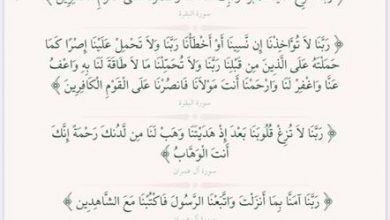 سورة البقرة
﴿ رَبَّنَا لاَ تُؤَاخِذْنَا إِن نَّسِينَا أَوْ أَخْطَأْنَا رَبَّنَا وَلاَ تَحْمِلْ عَلَيْنَا إِصْرًا كَمَا
حَمَلْتَهُ عَلَى الَّذِينَ مِن قَبْلِنَا رَبَّنَا وَلاَ تُحَمِّلْنَا مَا لاَ طَاقَةَ لَنَا بِهِ وَاعْفُ
عَنَّا وَاغْفِرْ لَنَا وَارْحَمْنَا أَنتَ مَوْلاَنَا فَانصُرْنَا عَلَى الْقَوْمِ الْكَافِرِينَ ﴾
سورة البقرة
﴿ رَبَّنَا لاَ تُزِغْ قُلُوبَنَا بَعْدَ إِذْ هَدَيْتَنَا وَهَبْ لَنَا مِن لَّدُنكَ رَحْمَةً إِنَّكَ
أَنتَ الْوَهَّابُ ﴾
سورة آل عمران
﴿ رَبَّنَا آمَنَّا بِمَا أَنزَلْتَ وَاتَّبَعْنَا الرَّسُولَ فَاكْتُبْنَا مَعَ الشَّاهِدِينَ ﴾
سورة آل عمران